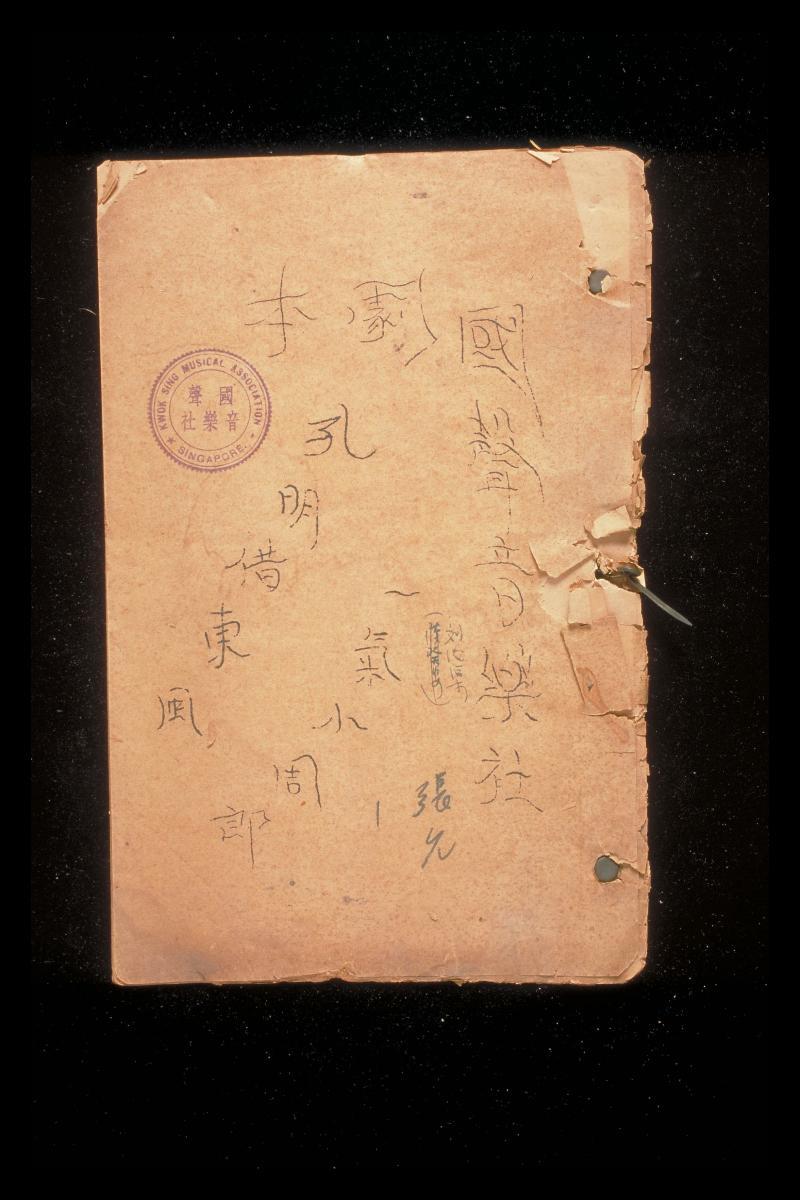 國聲音樂社
劇本
孔明借東風
一氣小周郎
張允
KWOK SING MUSICAL ASSOCIATION
國聲
音樂社
★ SINGAPORE. ★